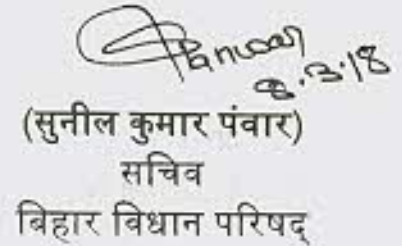 Panwar
8.3.18
(सुनील कुमार पंवार)
सचिव
बिहार विधान परिषद्